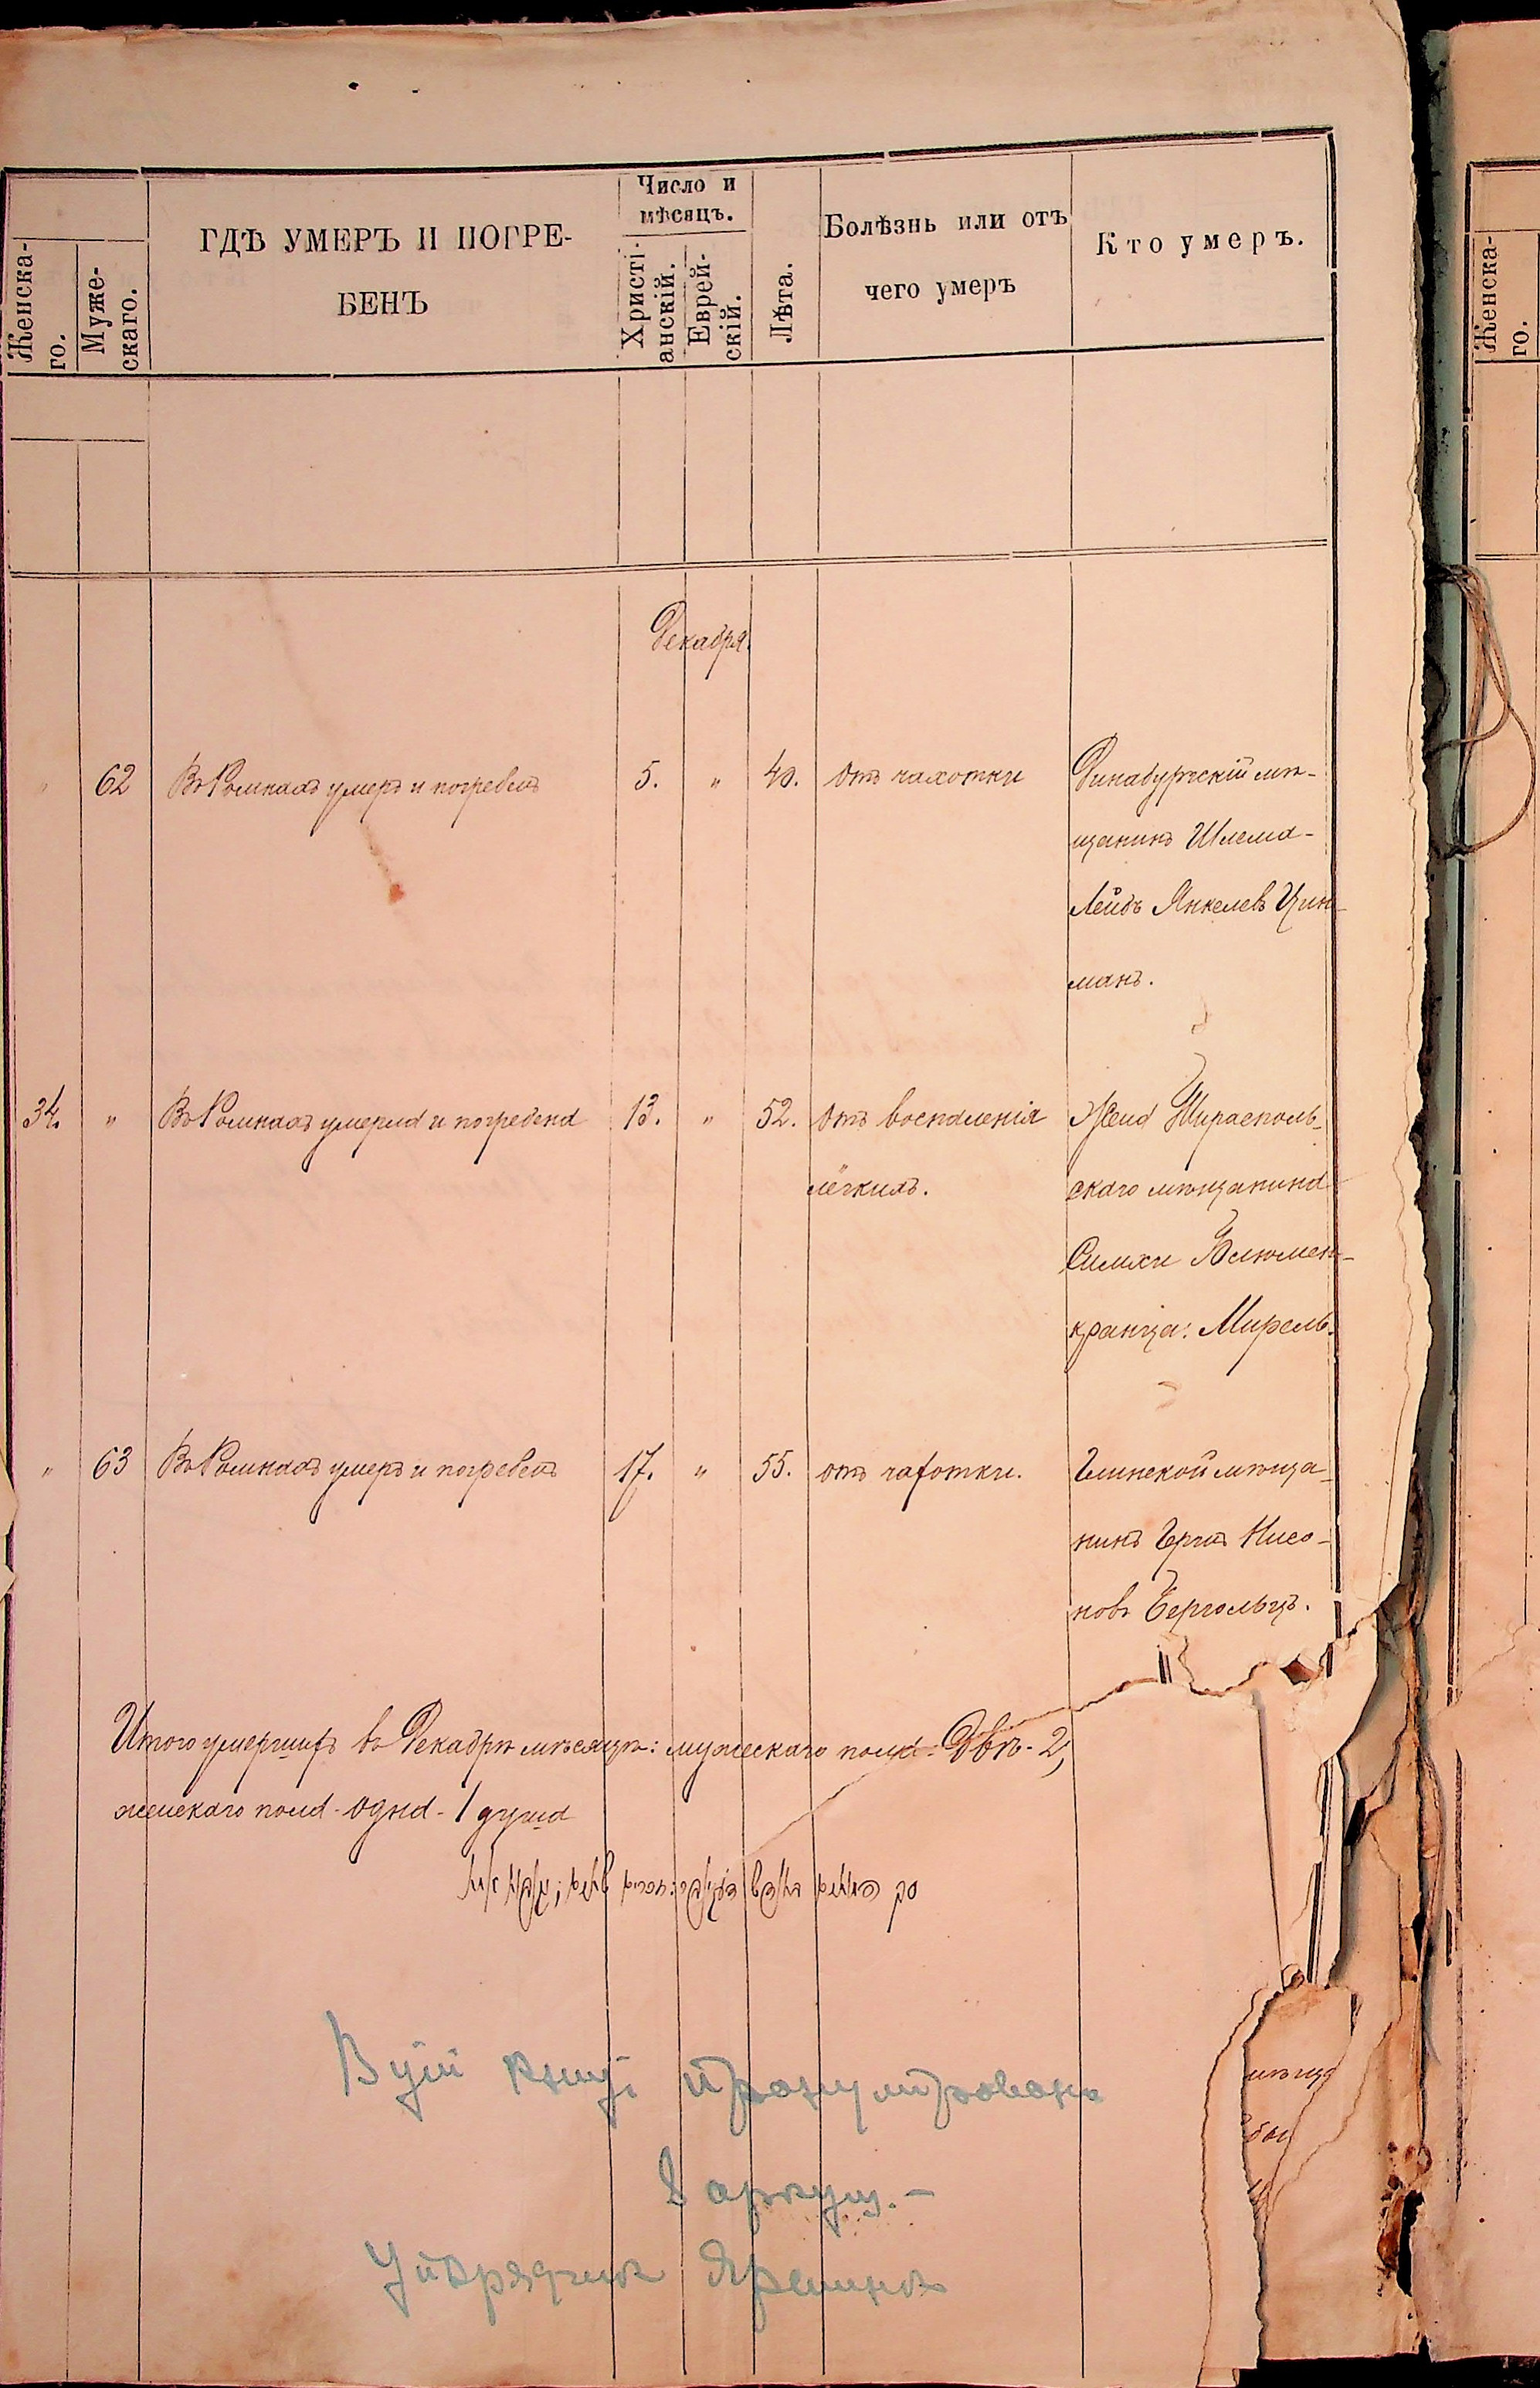 Женска-
го.
Муже-
скаго.
ГДѢ УМЕРЪ И ПОГРЕ-
БЕНЪ
Число и
мѣсяцъ.
Христі-
анскій.
Еврей-
скій.
Лѣта.
Болѣзнь или отъ
чего умеръ
Кто умеръ.
Декабря.
" 62 Въ Ромнахъ умеръ и погребенъ 5. " 40. отъ чахотки Динабургскій мѣ-
щанинъ Шлема-
Лейбъ Янкелевъ Цин-
манъ.
34. " Въ Ромнахъ умерла и погребена 13. " 52. отъ воспаленія Жена Тирасполь-
лёгкихъ. скаго мѣщанина
Симхи Блюмен-
кранца: Мирель.
" 63 Въ Ромнахъ умеръ и погребенъ 17. " 55. отъ чахотки. Глинской мѣща-
нинъ Нисо-
новъ Бергольцъ.
Итого умершихъ въ Декабрѣ мѣсяцѣ: мужескаго пола: Двѣ - 2,
женскаго пола - одна - 1 душа
В цій книзі пронумеровано
аркуш. -
Женска-
го.